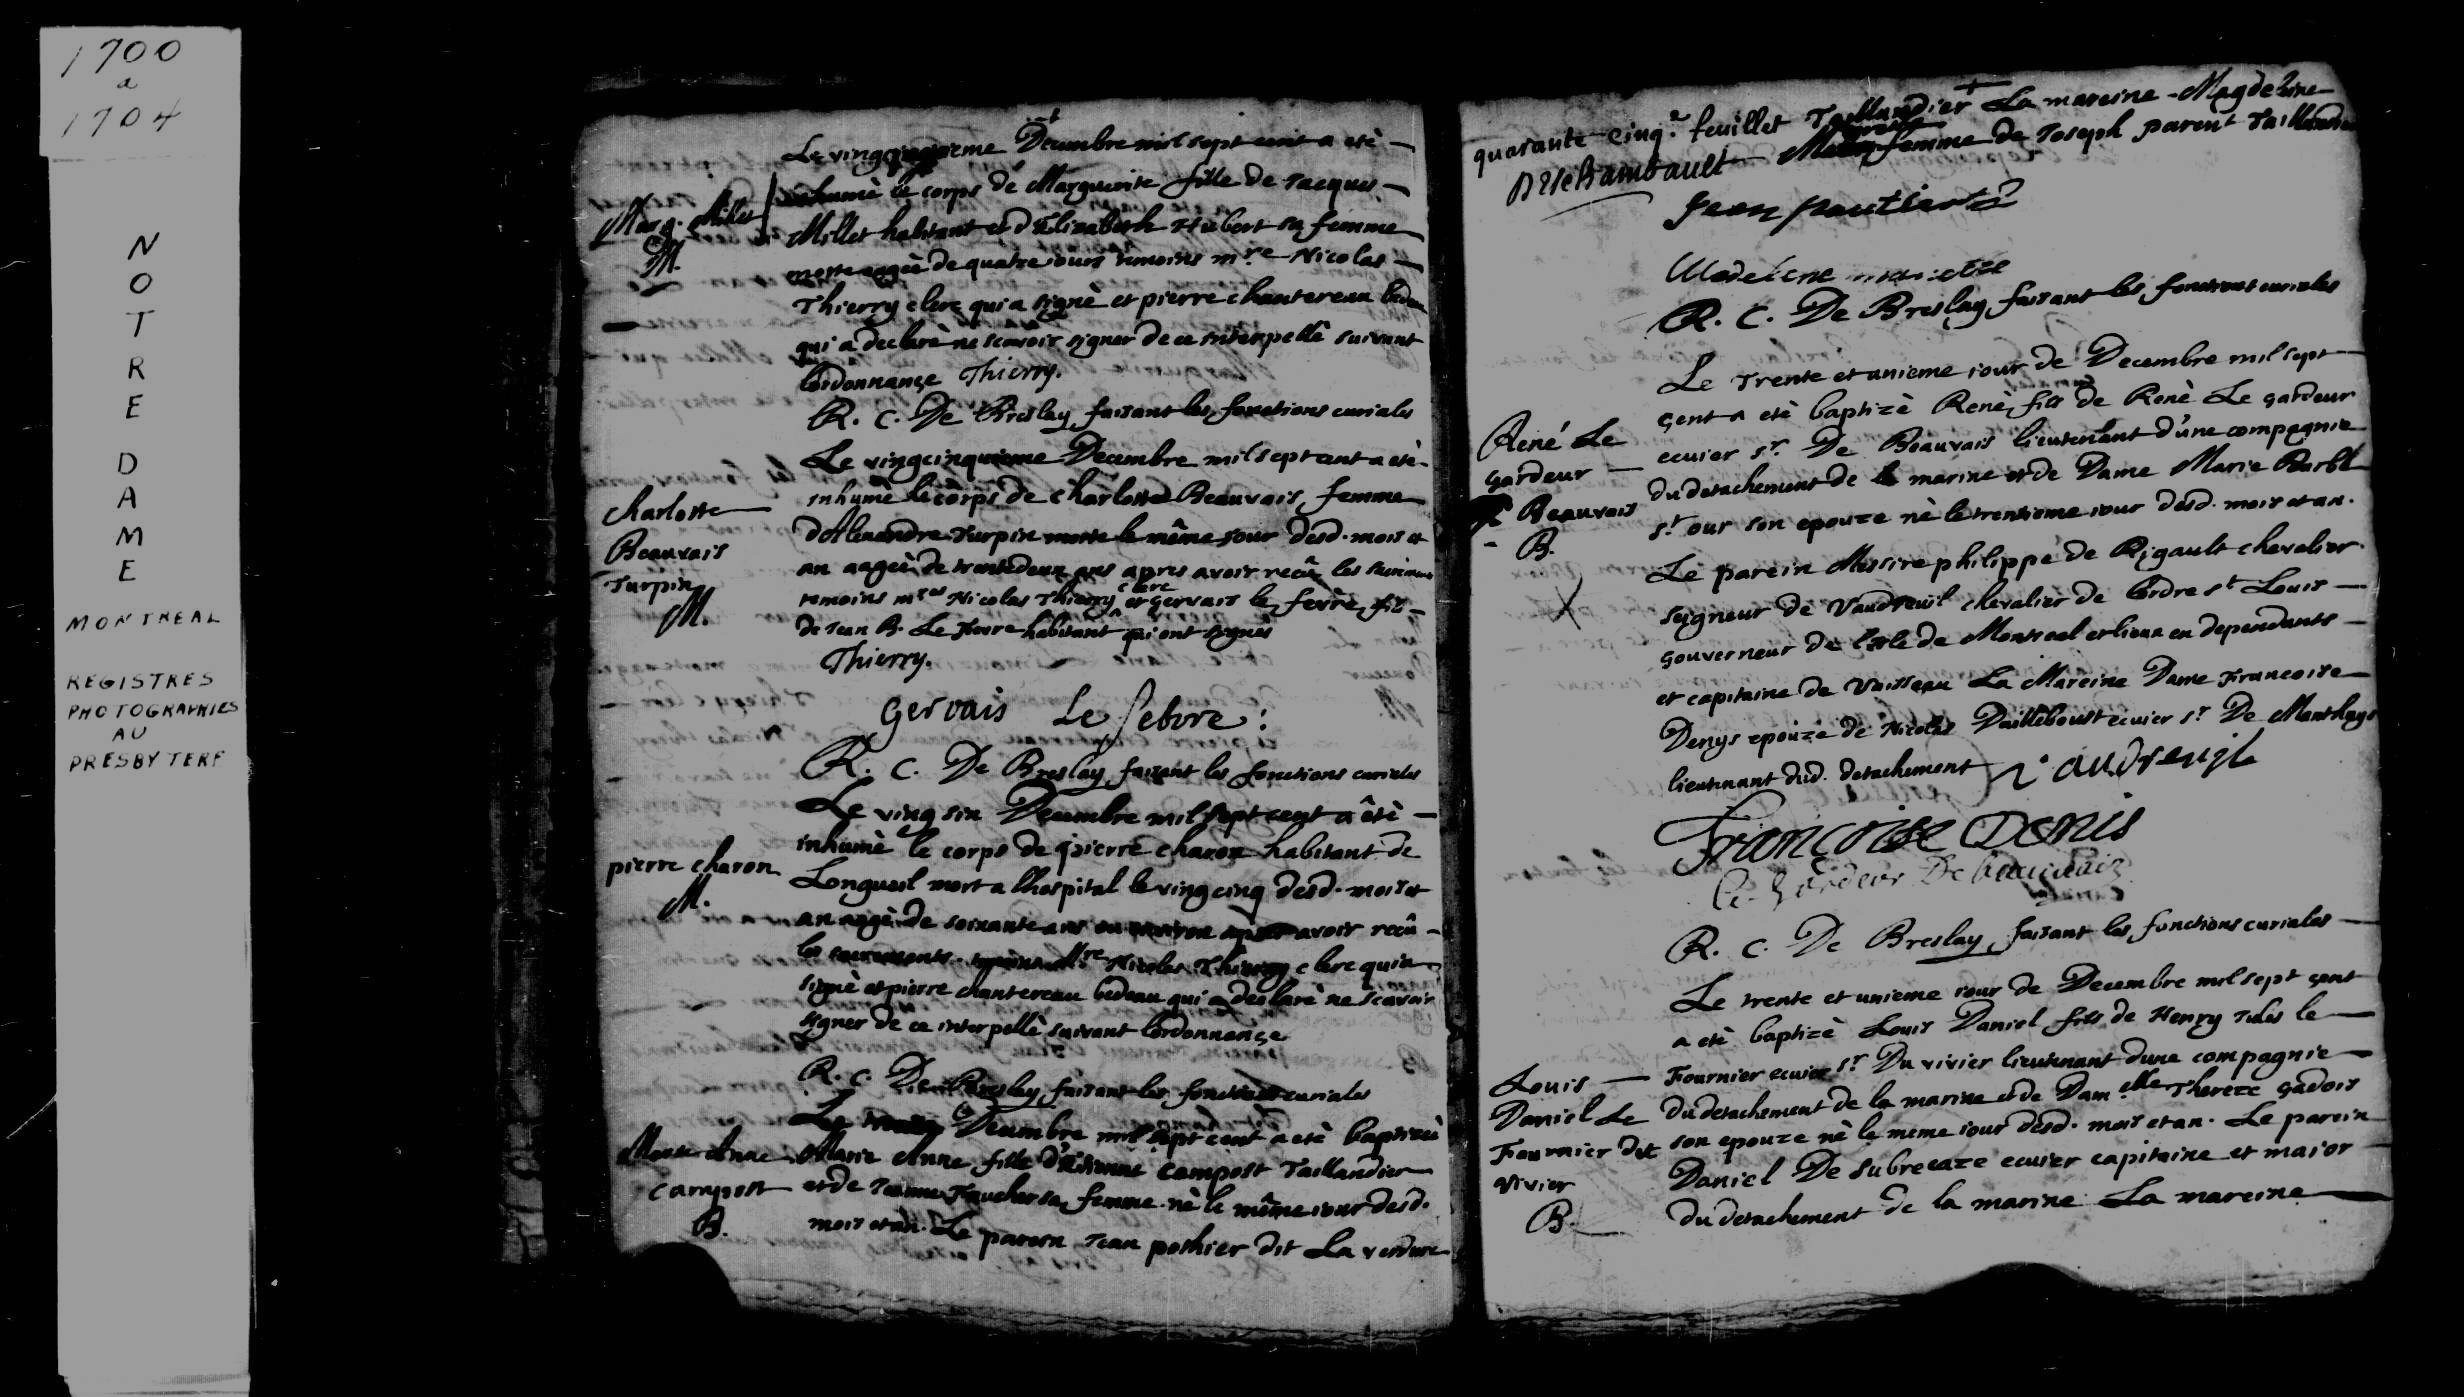 1700
a
1704
NOTRE DAME
MONTREAL
REGISTRES
PHOTOGRAPHIES
AU
PRESBYTERE
Decembre mil sept cent a eté
inhumé le corps de Marguerite fille de Jacques
Marg. Millet
Millet habitant et d'Elizabeth Hubert sa femme
M.
morte aagée de quatre jours temoins mre Nicolas
Thierry clerc qui a signé et pierre chantereau bedeau
qui a declaré ne scavoir signer de ce interpellé suivant
l'ordonnance Thierry.
R. C. De Breslay faisant les fonctions curiales
Le vingcinquieme Decembre mil sept cent a eté
Charlotte
inhumé le corps de Charlotte Beauvais femme
Beauvais
d'Alexandre Turpin morte le même jour desd. mois et
Turpin
an aagée de trentedeux ans apres avoir recû les
M.
temoins mres Nicolas Thierry clerc et Gervais le fevre fils
de Jean B. Le Fevre habitant qui ont signés
Thierry.
Gervais Le febvre :
R. C. De Breslay faisant les fonctions curiales
Le ving six Decembre mil sept cent a êté
inhumé le corps de pierre charon habitant de
pierre charon
Longueil mort a l'hospital le ving cinq desd. mois et
M.
an aagé de soixante ans ou environ apres avoir recû
les sacrements. temoins Mre Nicolas Thierry clerc qui a
signé et pierre chantereau bedeau qui a declaré ne scavoir
signer de ce interpellé suivant l'ordonnance
R. C. De Breslay faisant les fonctions curiales
Le Decembre mil sept cent a eté baptizée
Marie Anne
Marie Anne fille d'Etienne Campost Taillandier
Campost
et de Jeanne Faucher sa femme né le même jour desd.
B.
mois et an. Le parein Jean pothier dit La verdure
quarante cinq.e feuillet Taillandier La mareine Magdeleine
femme de Joseph parent Taillandier
Jean pautier
R. C. De Breslay faisant les fonctions curiales
Le trente et unieme jour de Decembre mil sept
cent a eté baptizé René fils de René Le gardeur
René Le
ecuier sr. De Beauvais lieutenant d'une compagnie
gardeur
du detachement de la marine et de Dame Marie Barbe
Beauvais
st our son epouze né le trentieme jour desd. mois et an.
B.
Le parein Messire philippe de Rigault chevalier
seigneur de Vaudreuil chevalier de l'ordre st Louis
gouverneur de l'isle de Montreal et lieux en dependants
et capitaine de Vaisseau La Mareine Dame Francoise
Denys epouze de Nicolas Dailleboust ecuier sr. De Manthet
lieutenant dud. detachement Vaudreuil
Francoise Denis
R. C. De Breslay faisant les fonctions curiales
Le trente et unieme jour de Decembre mil sept cent
a eté baptizé Louis Daniel fils de Henry Jules le
Fournier ecuier sr. Du vivier lieutenant d'une compagnie
Louis
du detachement de la marine et de Dam.elle Thereze Gadois
Daniel Le
son epouze né le meme jour desd. mois et an. Le parein
Fournier dit
Daniel De Subrecaze ecuier capitaine et major
vivier
du detachement de la marine La mareine
B.